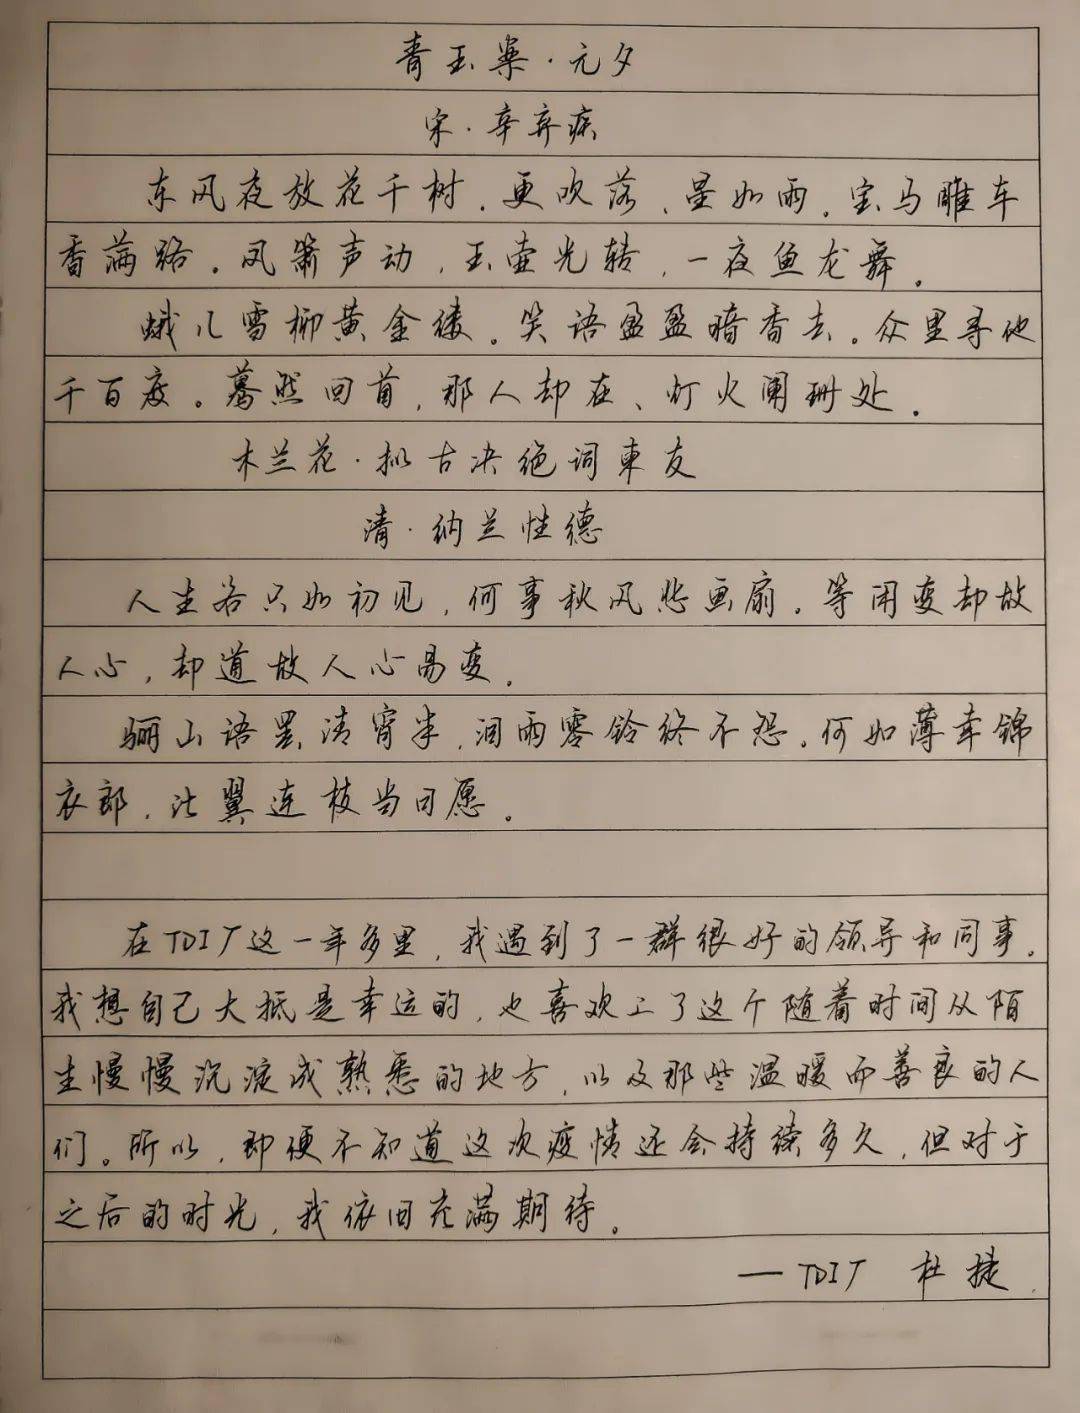 青玉案·元夕
宋·辛弃疾
东风夜放花千树。更吹落、星如雨。宝马雕车
香满路。凤箫声动,玉壶光转,一夜鱼龙舞。
蛾儿雪柳黄金缕。笑语盈盈暗香去。众里寻他
千百度。蓦然回首,那人却在、灯火阑珊处。
木兰花·拟古决绝词柬友
清·纳兰性德
人生若只如初见,何事秋风悲画扇。等闲变却故
人心,却道故人心易变。
骊山语罢清宵半,泪雨零铃终不怨。何如薄幸锦
衣郎,比翼连枝当日愿。
在TDIT这一年多里,我遇到了一群很好的领导和同事。
我想自己大抵是幸运的,也喜欢上了这个随着时间从陌
生慢慢沉淀成熟悉的地方,以及那些温暖而善良的人
们。所以,即便不知道这次疫情还会持续多久,但对于
之后的时光,我依旧充满期待。
——TDIT 杜捷